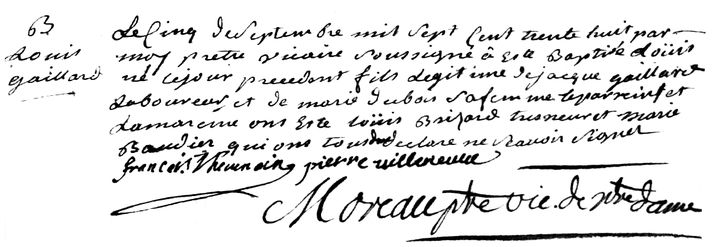 B
Louis
gaillard
Le Cinq de Septembre mil Sept Cent trente huit par
moy pretre vicaire Soussigné a Este Baptisé Loüis
né le jour precedent fils legitime de jacque gaillard
Laboureur et de marie dubois Sa femme le parrein et
La mareine ons Este Loüis Brisard et marie
Baudier qui ons tous declaré ne Scavoir Signer
francois Thevenain pierre villeneuve
Moreau ptre vic. de ntre dame